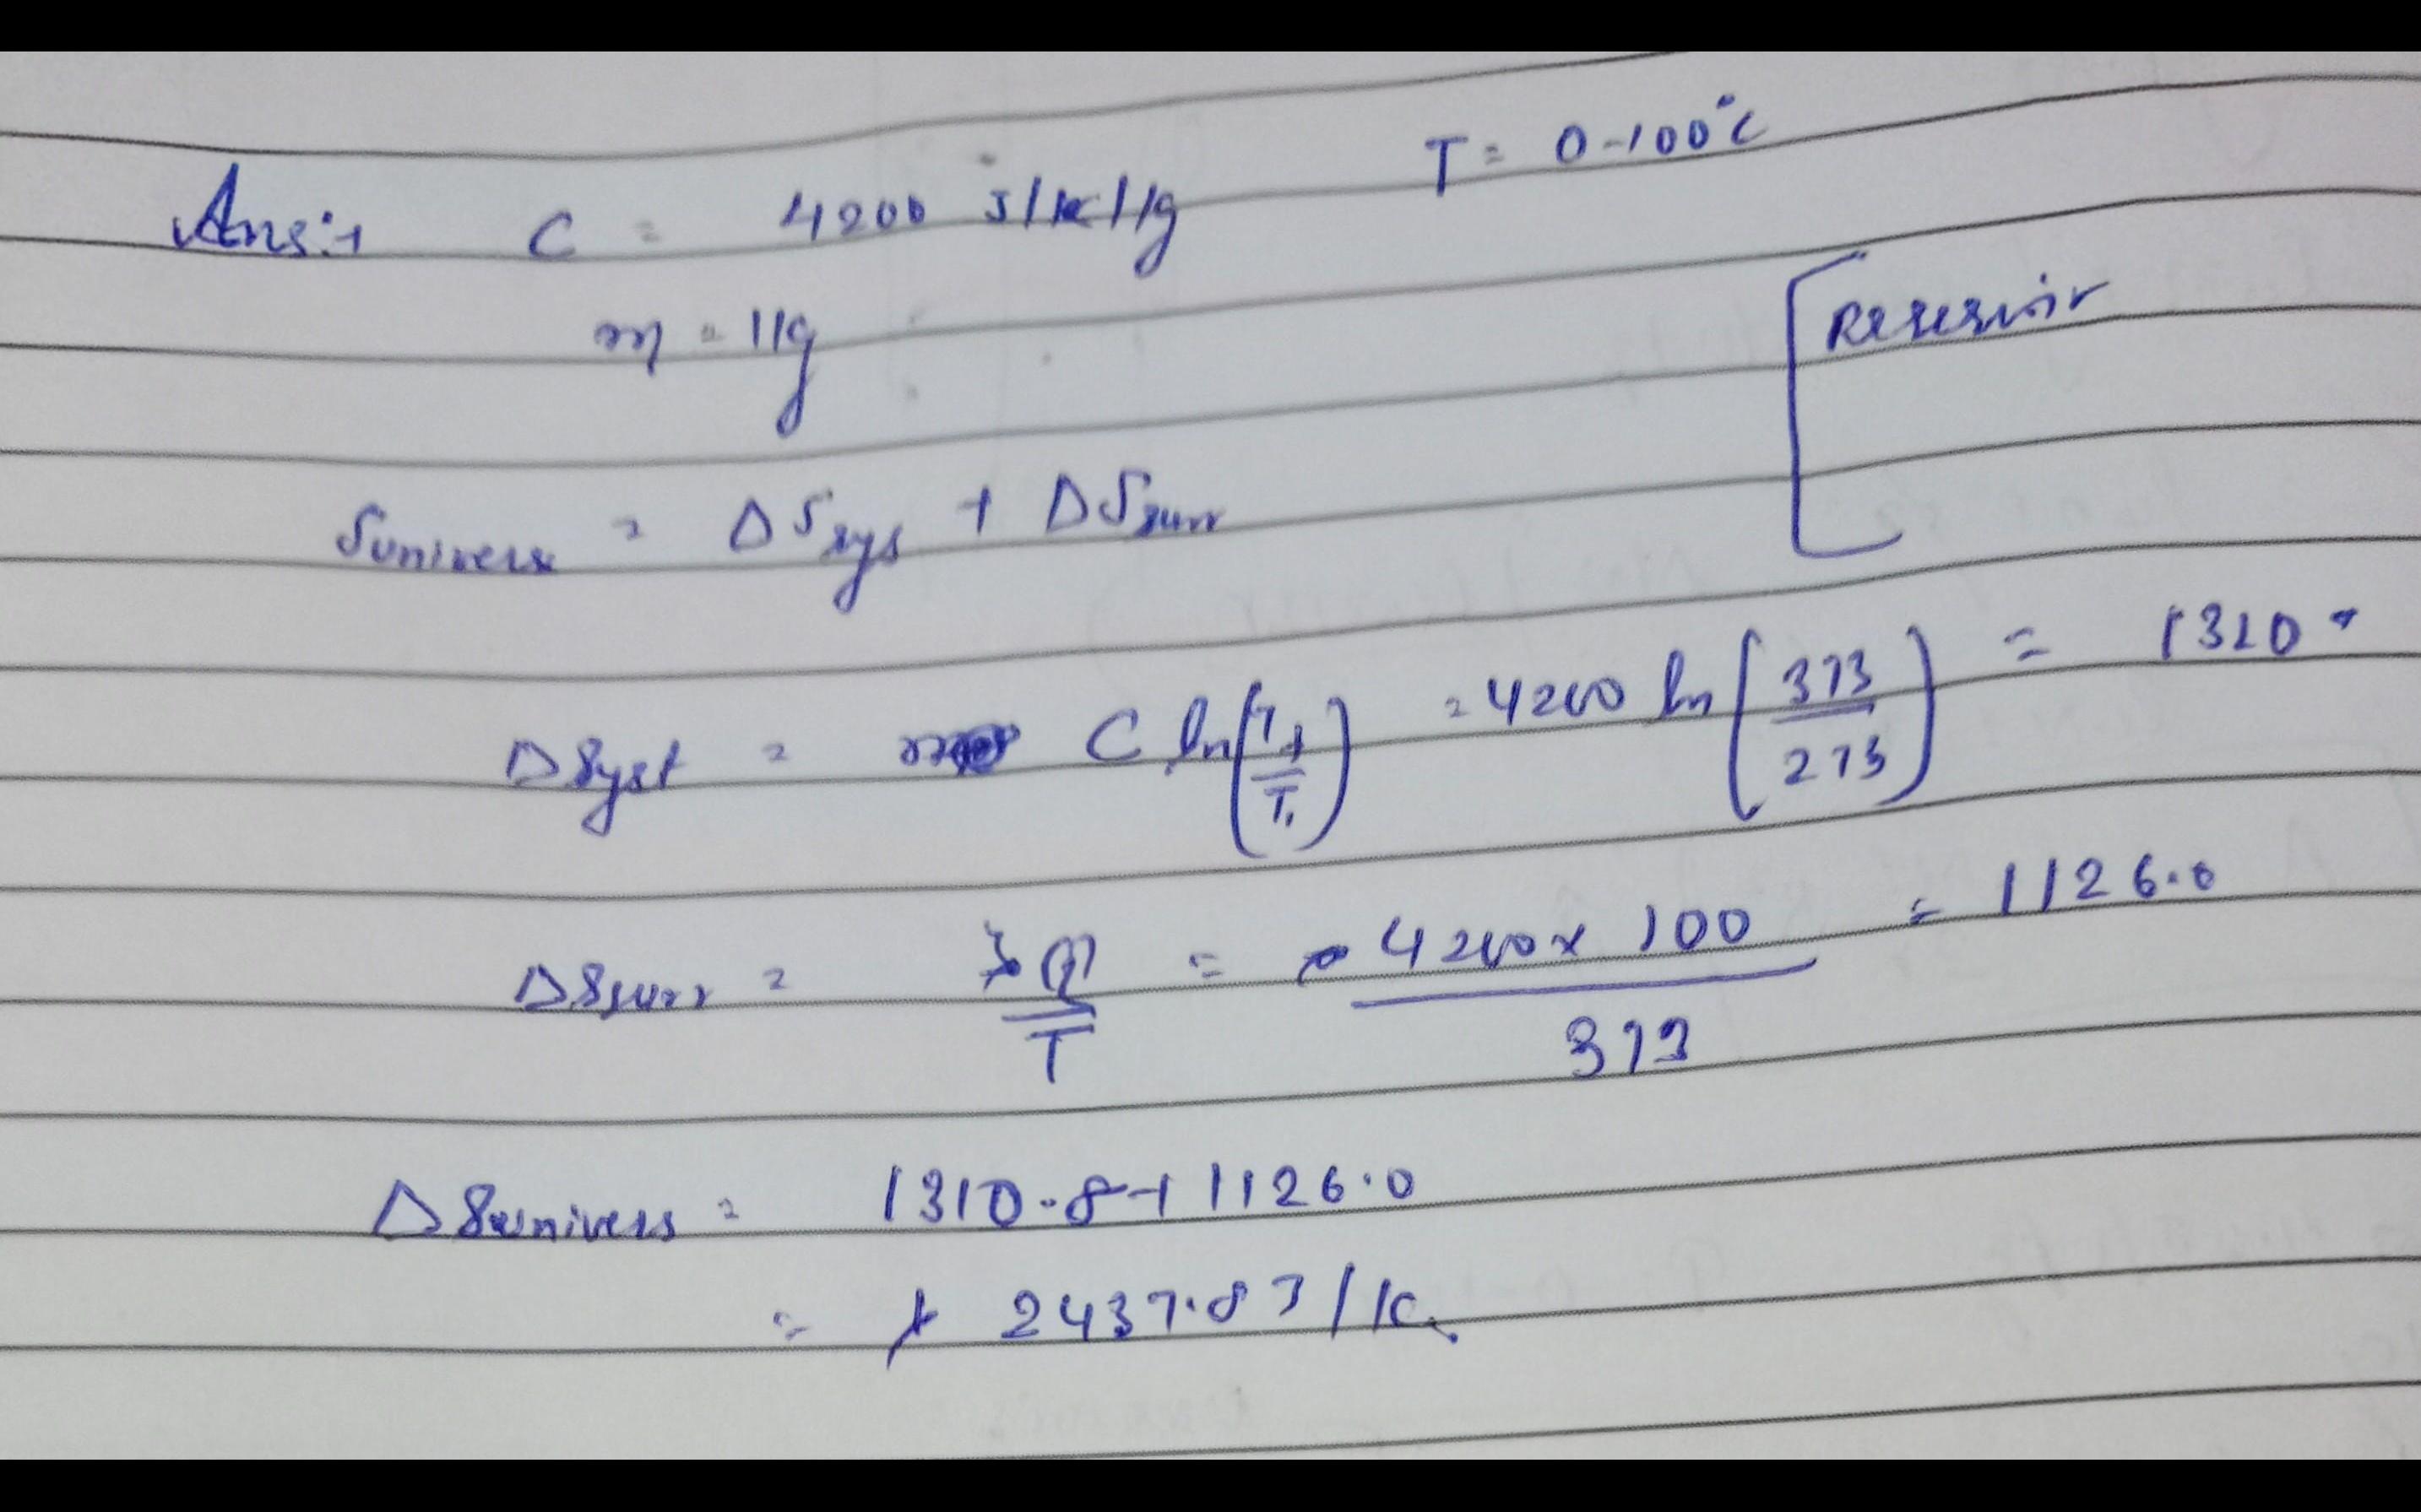 Ans:→ C = 4200 J/K/kg T = 0-100°C
m = 1kg
Reservoir
Suniverse = ΔSsys + ΔSsurr
ΔSyst = C ln(Tf/Ti) = 4200 ln(373/273) = 1310.
ΔSsurr = Q/T = 4200 x 100 / 373 = 1126.0
ΔSunivers = 1310.8 + 1126.0
= 2437.8 J/K.